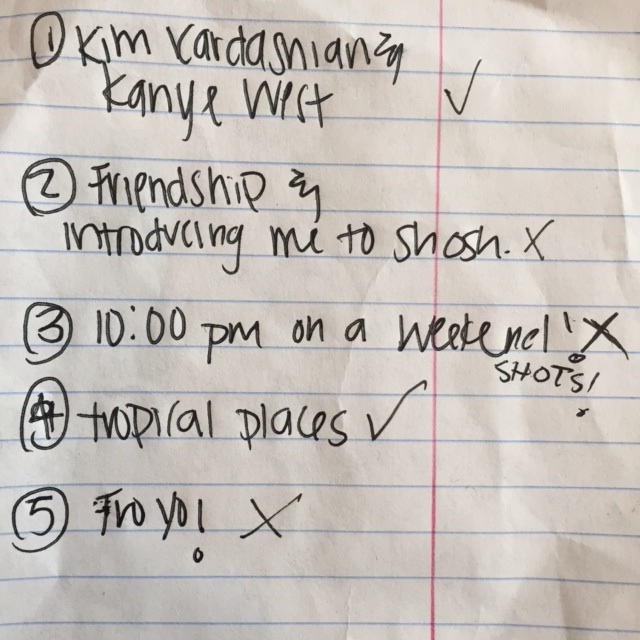 ① Kim Kardashian &
Kanye West ✓
② Friendship &
introducing me to shosh. X
③ 10:00 pm on a weekend! X
SHOTS!
④ tropical places ✓
⑤ Fro yo! X